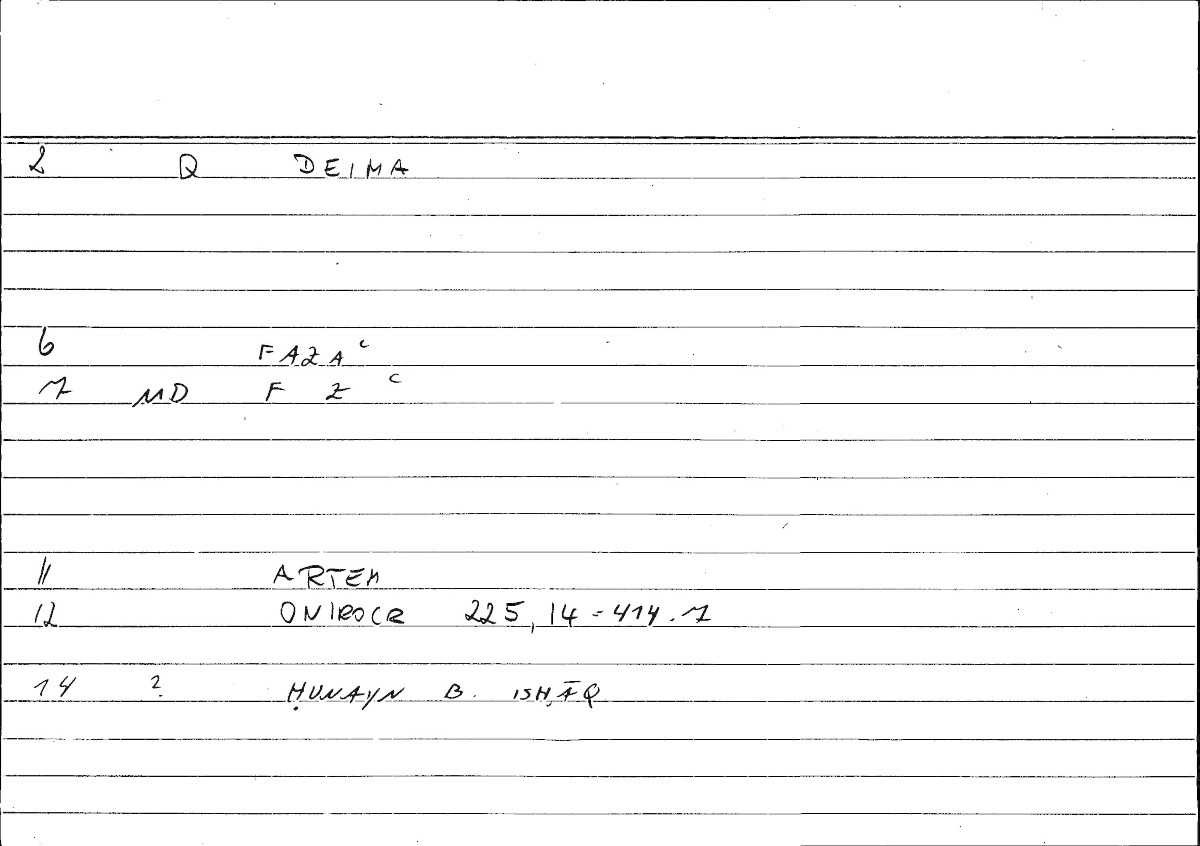 2 Q DEIMA
6 FAZAʿ
7 MD F Z ʿ
11 ARTEM
12 ONIROCR 225,14 = 414.7
14 ? ḤUNAYN B. ISḤĀQ